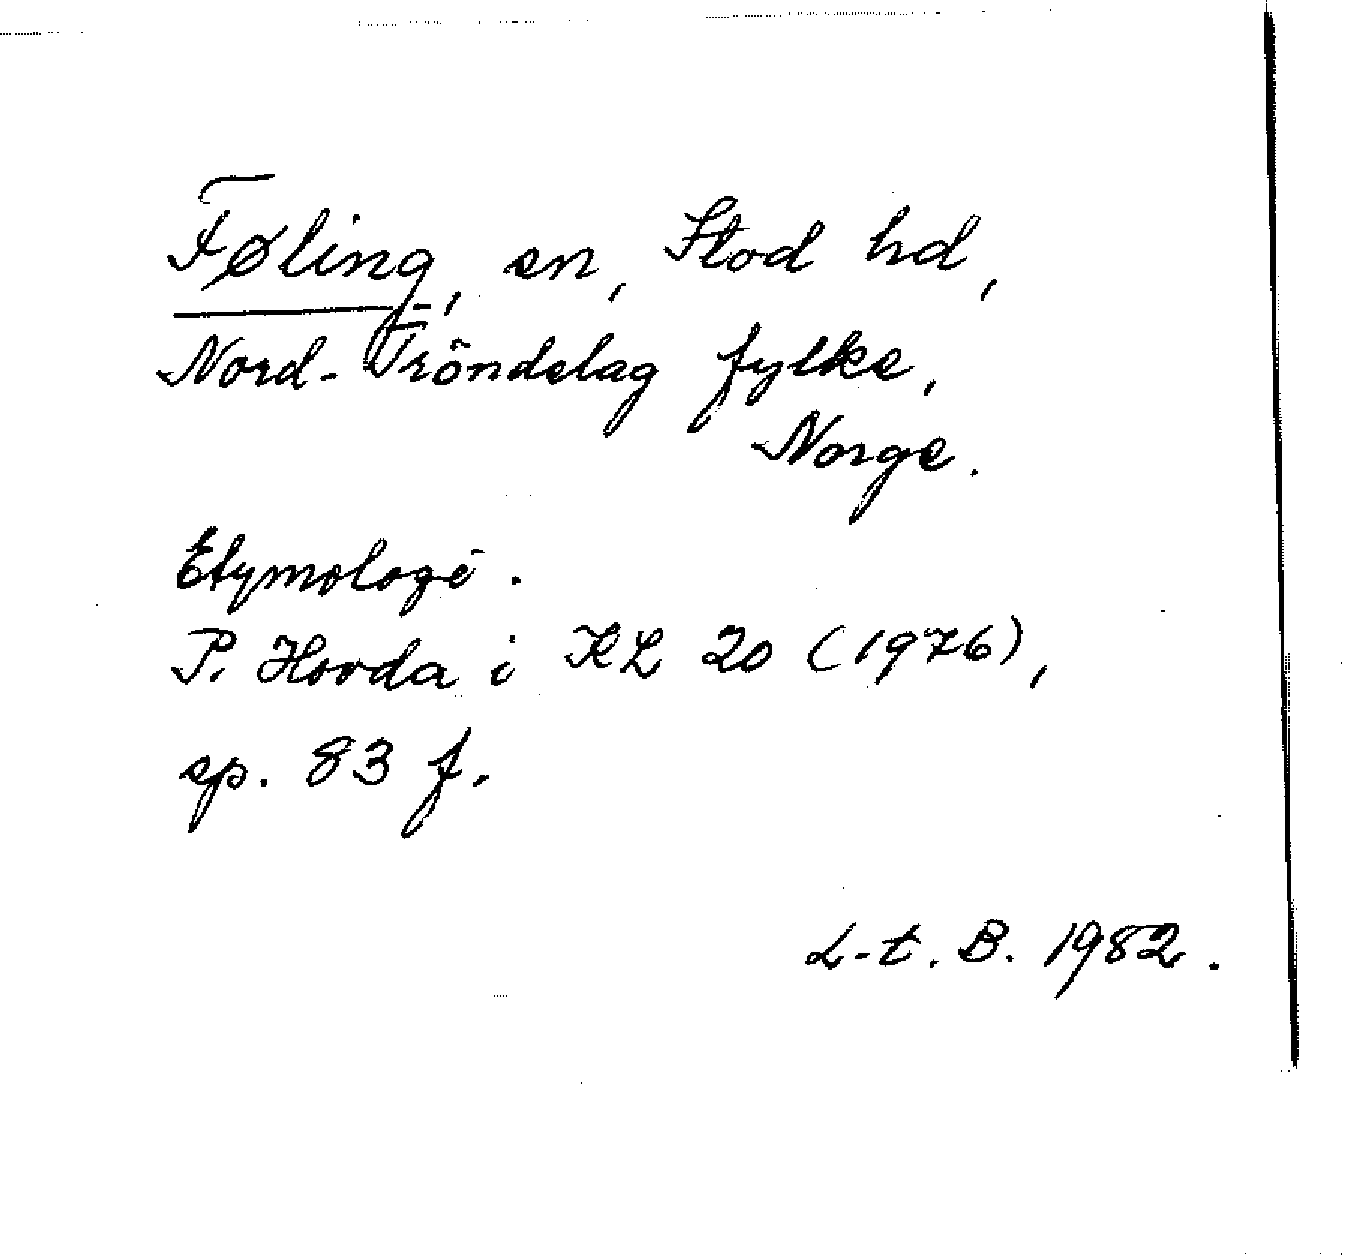 Føling, en, Stod hd,
Nord-Tröndelag fylke,
Norge.
Etymologi.
P. Hovda i KL 20 (1976),
sp. 83 f.
L-t. B. 1982.